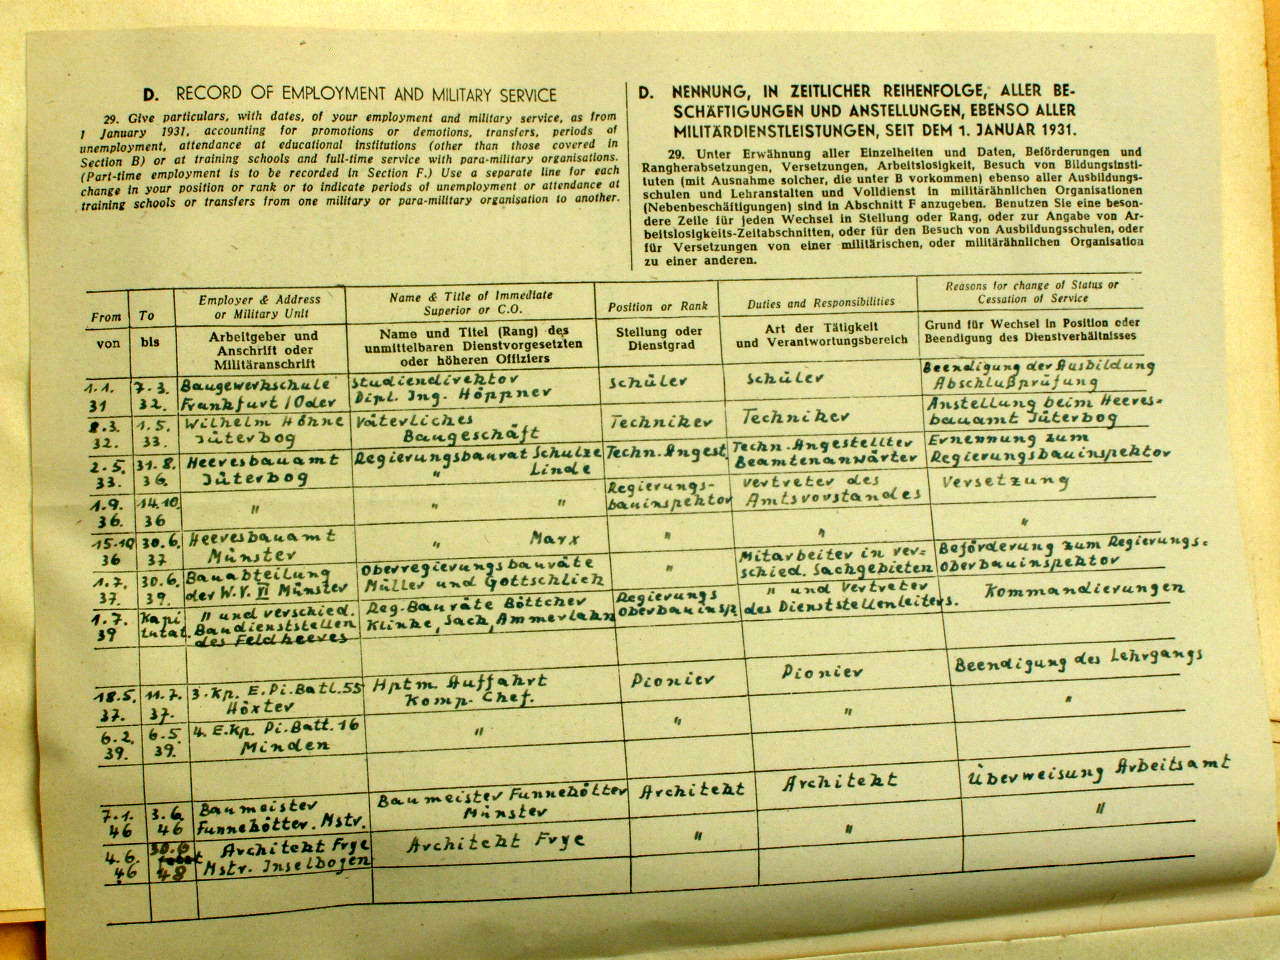 D. RECORD OF EMPLOYMENT AND MILITARY SERVICE
29. Give particulars, with dates, of your employment and military service, as from
1 January 1931, accounting for promotions or demotions, transfers, periods of
unemployment, attendance at educational institutions (other than those covered in
Section B) or at training schools and full-time service with para-military organisations.
(Part-time employment is to be recorded in Section F.) Use a separate line for each
change in your position or rank or to indicate periods of unemployment or attendance at
training schools or transfers from one military or para-military organisation to another.
D. NENNUNG, IN ZEITLICHER REIHENFOLGE, ALLER BE-
SCHÄFTIGUNGEN UND ANSTELLUNGEN, EBENSO ALLER
MILITÄRDIENSTLEISTUNGEN, SEIT DEM 1. JANUAR 1931.
29. Unter Erwähnung aller Einzelheiten und Daten, Beförderungen und
Rangherabsetzungen, Versetzungen, Arbeitslosigkeit, Besuch von Bildungsinsti-
tuten (mit Ausnahme solcher, die unter B vorkommen) ebenso aller Ausbildungs-
schulen und Lehranstalten und Volldienst in militärähnlichen Organisationen
(Nebenbeschäftigungen) sind in Abschnitt F anzugeben. Benutzen Sie eine beson-
dere Zeile für jeden Wechsel in Stellung oder Rang, oder zur Angabe von Ar-
beitslosigkeits-Zeitabschnitten, oder für den Besuch von Ausbildungsschulen, oder
für Versetzungen von einer militärischen, oder militärähnlichen Organisation
zu einer anderen.
From To Employer & Address Name & Title of Immediate Position or Rank Duties and Responsibilities Reasons for change of Status or
or Military Unit Superior or C.O. Cessation of Service
von bis Arbeitgeber und Name und Titel (Rang) des Stellung oder Art der Tätigkeit Grund für Wechsel in Position oder
Anschrift oder unmittelbaren Dienstvorgesetzten Dienstgrad und Verantwortungsbereich Beendigung des Dienstverhältnisses
Militäranschrift oder höheren Offiziers
1.1. 7.3. Baugewerkschule Studiendirektor Schüler Schüler Beendigung der Ausbildung
31 32. Frankfurt/Oder Dipl. Ing. Höppner Abschlußprüfung
8.3. 1.5. Wilhelm Höhne Väterliches Techniker Techniker Anstellung beim Heeres-
32. 33. Jüterbog Baugeschäft bauamt Jüterbog
2.5. 31.8. Heeresbauamt Regierungsbaurat Schulze Techn. Angest. Techn. Angestellter Ernennung zum
33. 36. Jüterbog " Linde Beamtenanwärter Regierungsbauinspektor
1.9. 14.10. " " " Regierungs- Vertreter des Versetzung
36. 36 bauinspektor Amtsvorstandes
15.10 30.6. Heeresbauamt " Marx " " "
36 37 Münster
1.7. 30.6. Bauabteilung Oberregierungsbauräte " Mitarbeiter in ver= Beförderung zum Regierungs=
37. 39. der W.V. VI Münster Müller und Gottschlich schied. Sachgebieten oberbauinspektor
1.7. Kapi " und verschied. Reg.-Bauräte Böttcher Regierungs " und Vertreter Kommandierungen
39 tulat. Baudienststellen Klinke, Sack, Ammerlahn oberbauinsp. des Dienststellenleiters.
des Feldheeres
18.5. 11.7. 3. Kp. E. Pi. Batl. 55 Hptm. Auffahrt Pionier Pionier Beendigung des Lehrgangs
37. 37. Höxter Komp. Chef.
6.2. 6.5 4. E. Kp. Pi. Batt. 16 " " " "
39. 39. Minden
7.1. 3.6 Baumeister Baumeister Funnekötter Architekt Architekt Überweisung Arbeitsamt
46 46 Funnekötter. Mstr. Münster
4.6. 30.6 Architekt Frye Architekt Frye " " "
46 48 Mstr. Inselbogen